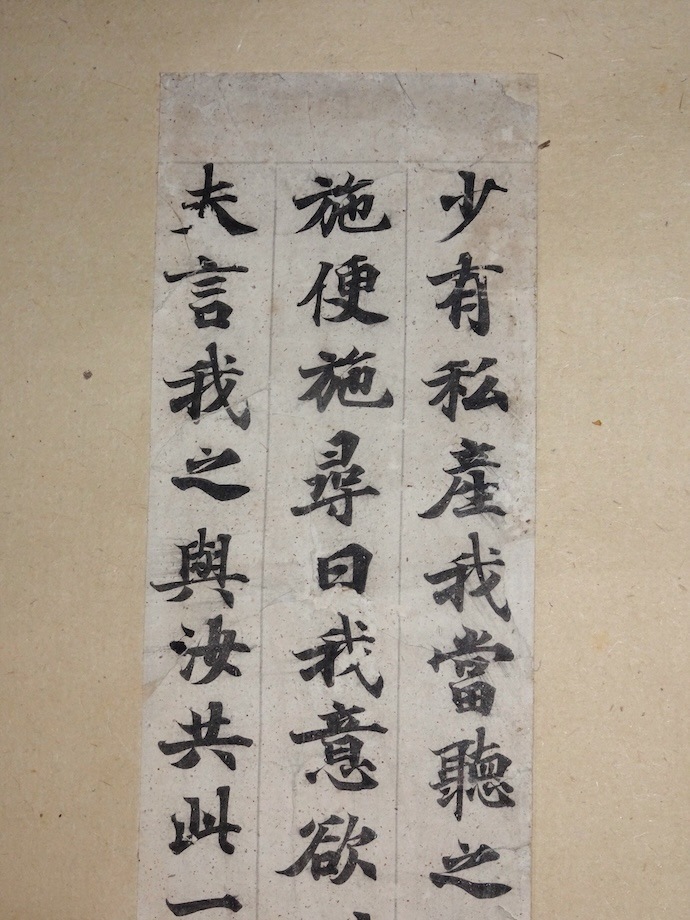 少有私產我當聽之
施便施尋曰我意欲
夫言我之與汝共此一